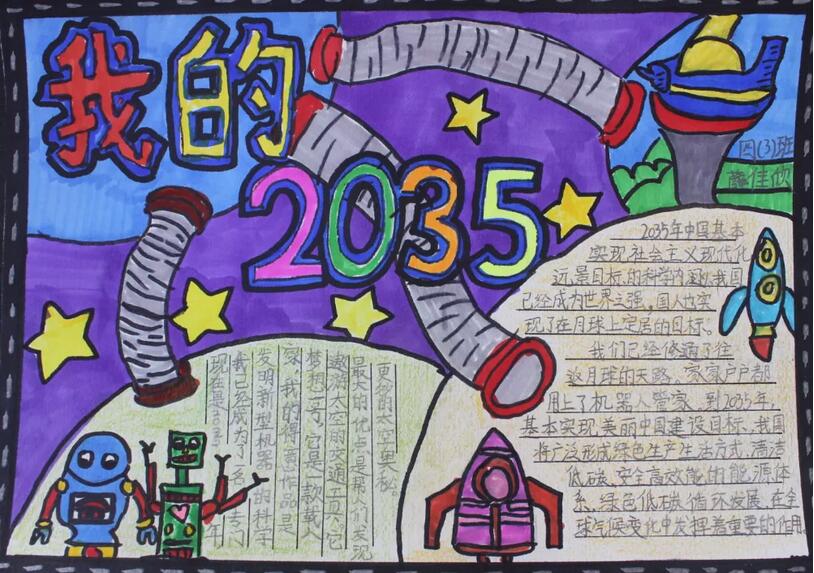 我的
2035
四(3)班
佳欣
2035年中国基本
实现社会主义现代化
远景目标的科学内涵,我国
已经成为世界强,国人也实
现了在月球上定居的目标。
我们已经修通了往
返月球的天路。家家户户都
用上了机器人管家。到2035年,
基本实现美丽中国建设目标。我国
将广泛形成绿色生产生活方式,清洁
低碳、安全高效能的能源体
系、绿色低碳循环发展,在全
球气候变化中发挥着重要的作用。
现在是2035年
我已经成为了一名专门
发明新型机器人的科学
家。我的得意作品是
梦想一号。它是一款载人
遨游太空的交通工具。它
最大的优点是帮人们实现
的太空奥秘。